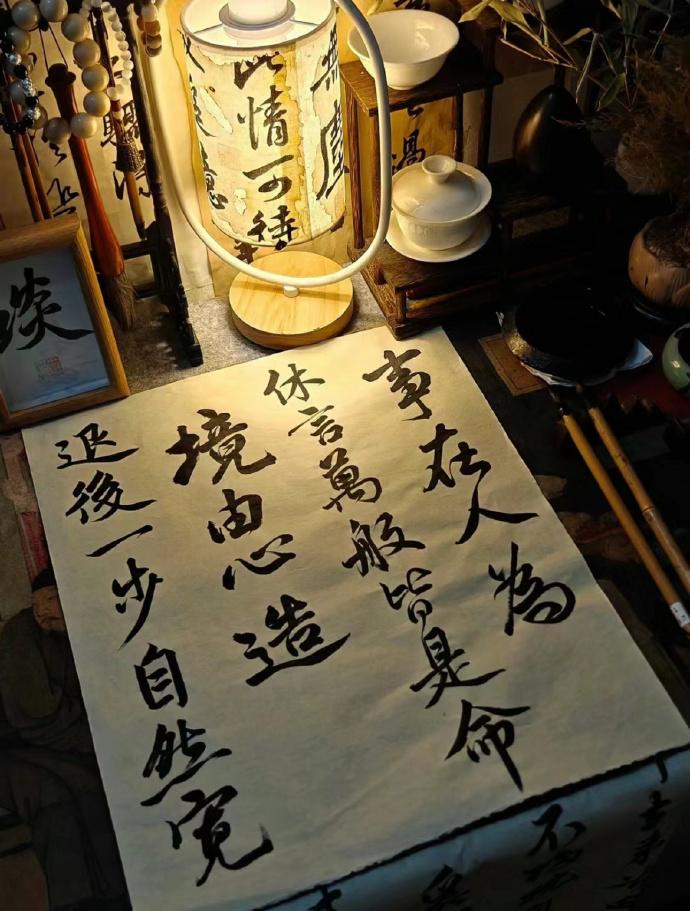 事在人為
休言萬般皆是命
境由心造
退後一步自然寬
無塵
此情可待
淡